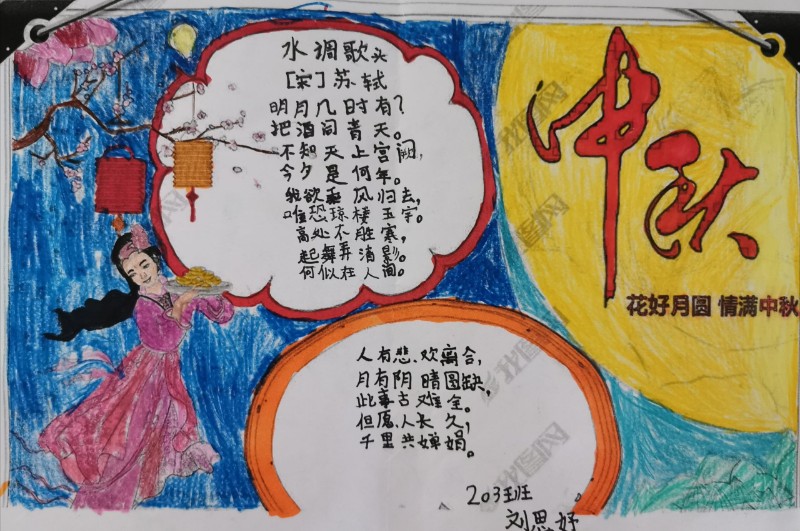 水调歌头
[宋]苏轼
明月几时有?
把酒问青天。
不知天上宫阙,
今夕是何年。
我欲乘风归去,
唯恐琼楼玉宇。
高处不胜寒,
起舞弄清影。
何似在人间。
人有悲、欢离合,
月有阴晴圆缺,
此事古难全。
但愿人长久,
千里共婵娟。
203班
刘思妤
中秋
花好月圆 情满中秋